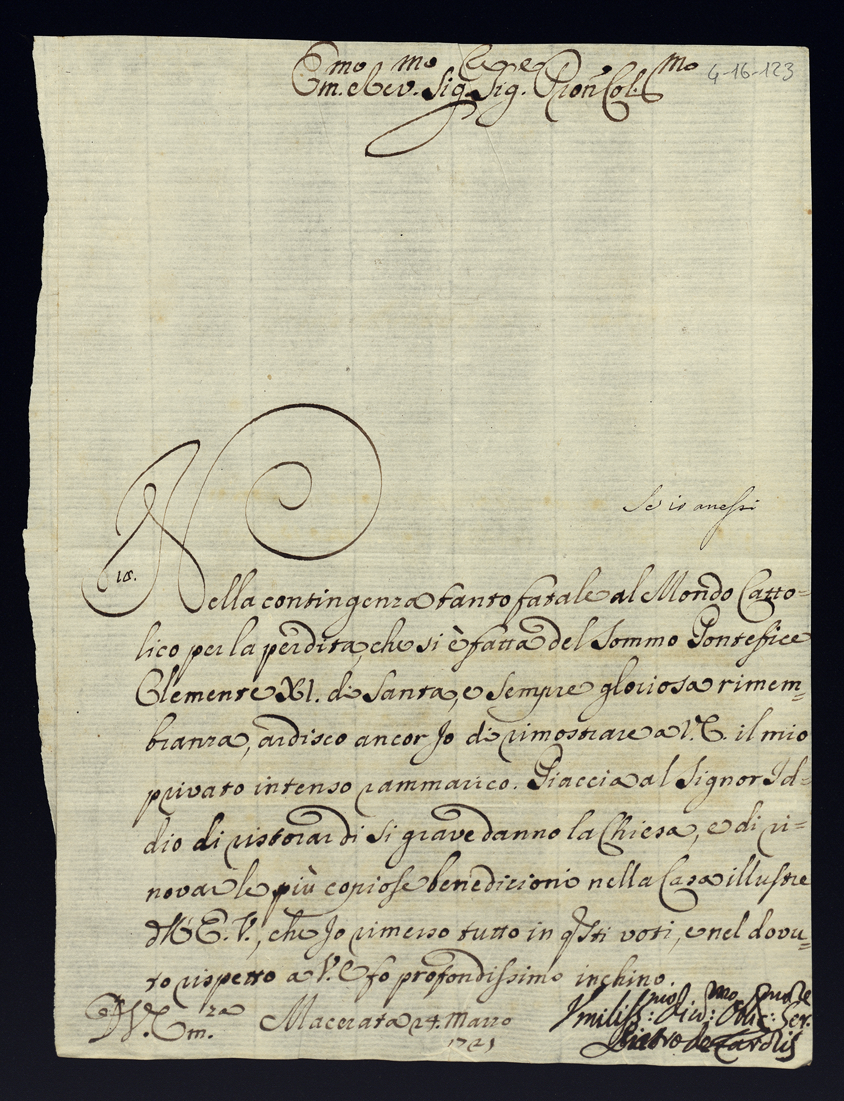 4-16-123
Em.mo e Rev.mo Sig. Sig. P̃ron̄ Col.mo
Se io avessi
Nella contingenza tanto fatale al Mondo Catto=
lico per la perdita, che si è fatta del Sommo Pontefice
Clemente XI. di Santa, e sempre gloriosa rimem=
branza, ardisco ancor Io di rimostrare a V.E. il mio
privato intenso rammarico. Piaccia al Signor Id=
dio di ristorar di sì grave danno la Chiesa, e di ri=
novar le più copiose benedizioni nella Casa illustre
dell'E.V., che Io rimesso tutto in q̃sti voti, e nel dovu=
to rispetto a V.E. fo profondissimo inchino.
D V. Em.za Macerata 24. Marzo
1721
Umiliss:mo Div:mo Obl: Ser.
Pietro de Carolis